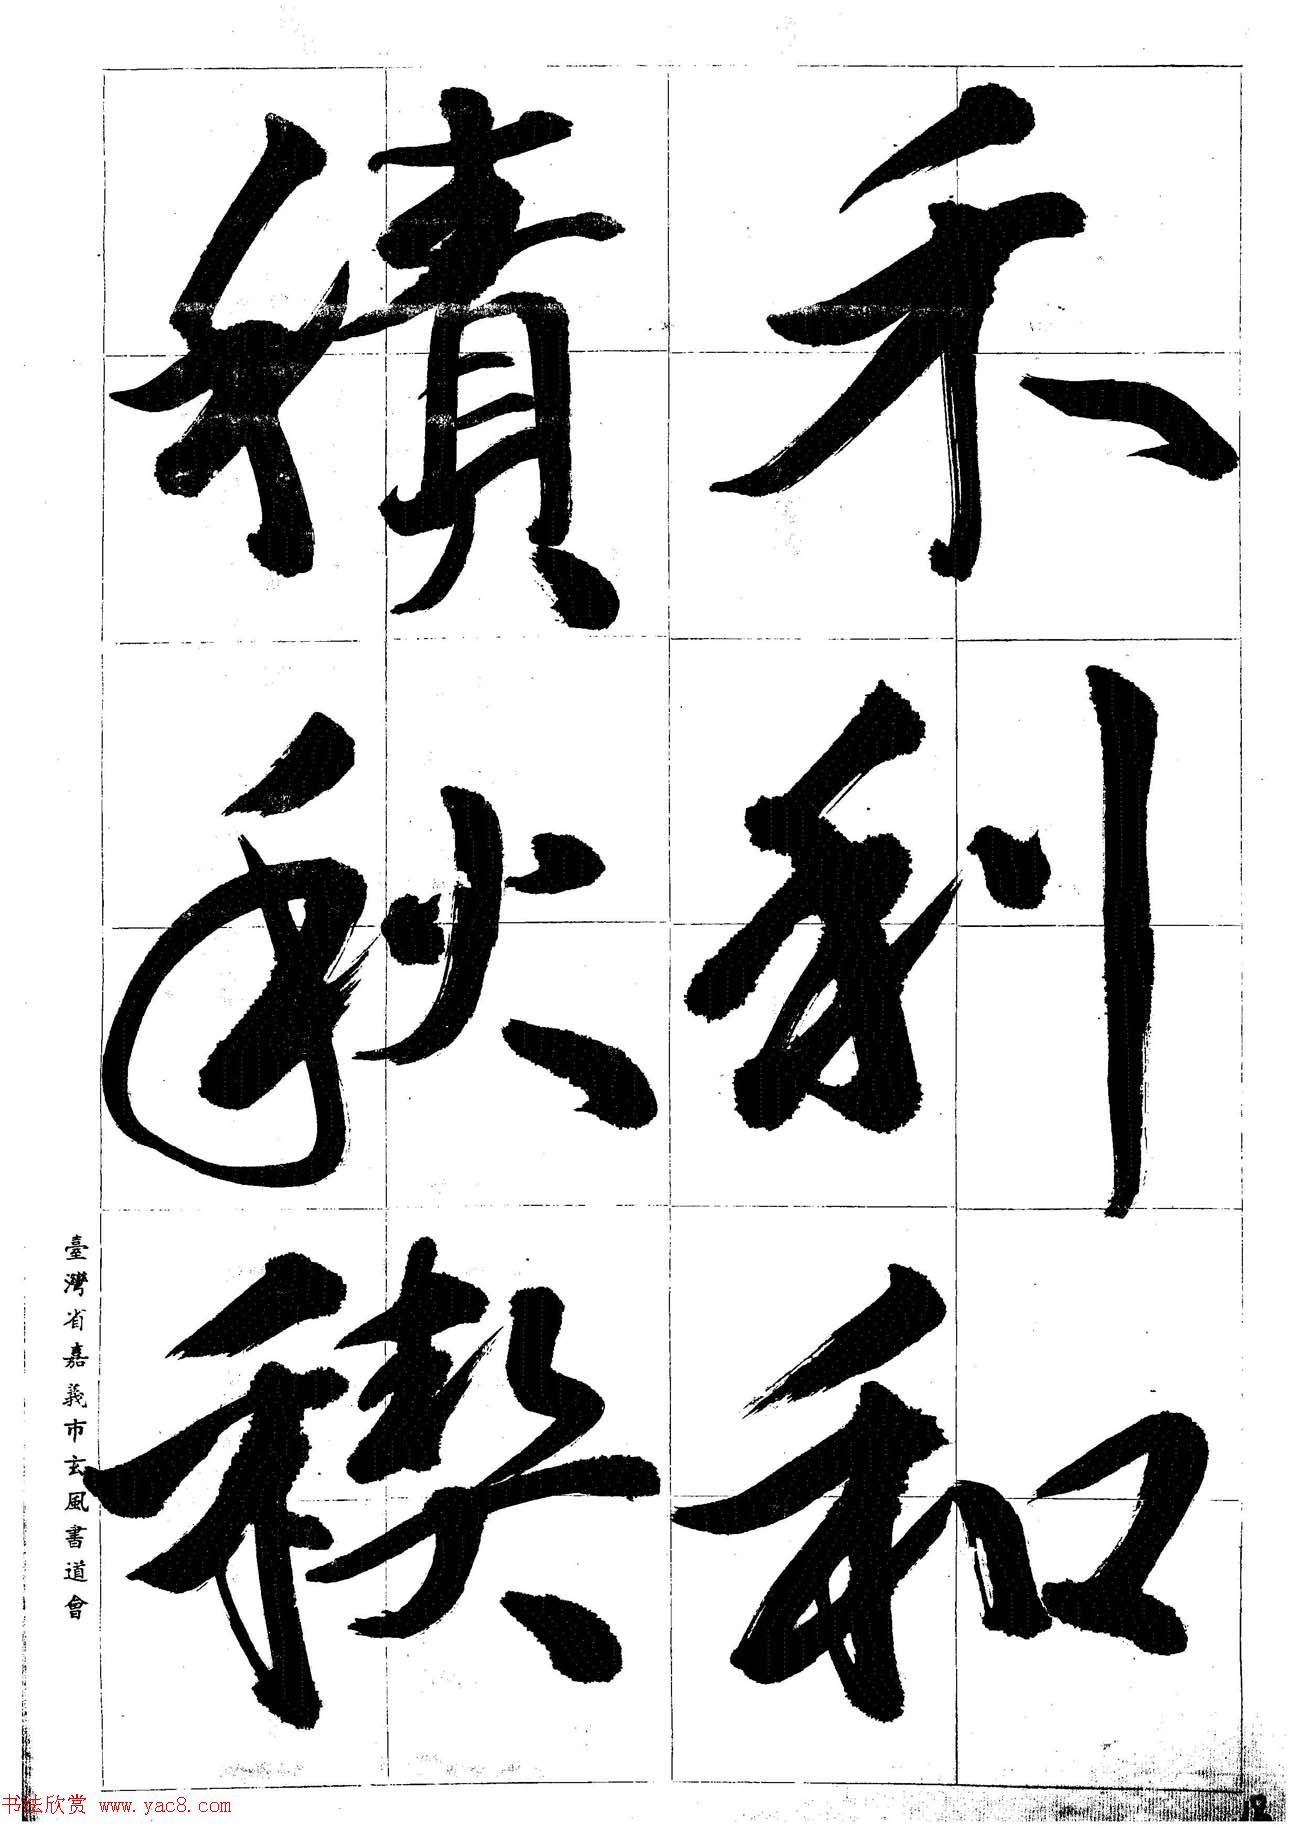 禾利和
積秋稧
臺灣省嘉義市玄風書道會
书法欣赏 www.yac8.com